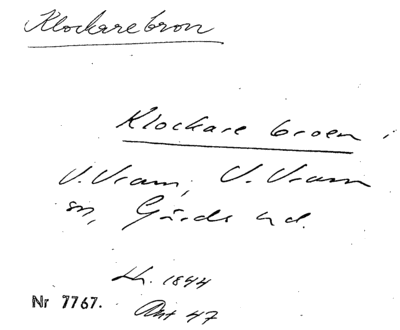 Klockarebron
Klockare broen i
V. Vram, V. Vram
sn, Gärds hd.
1844
Nr 7767. Akt 47